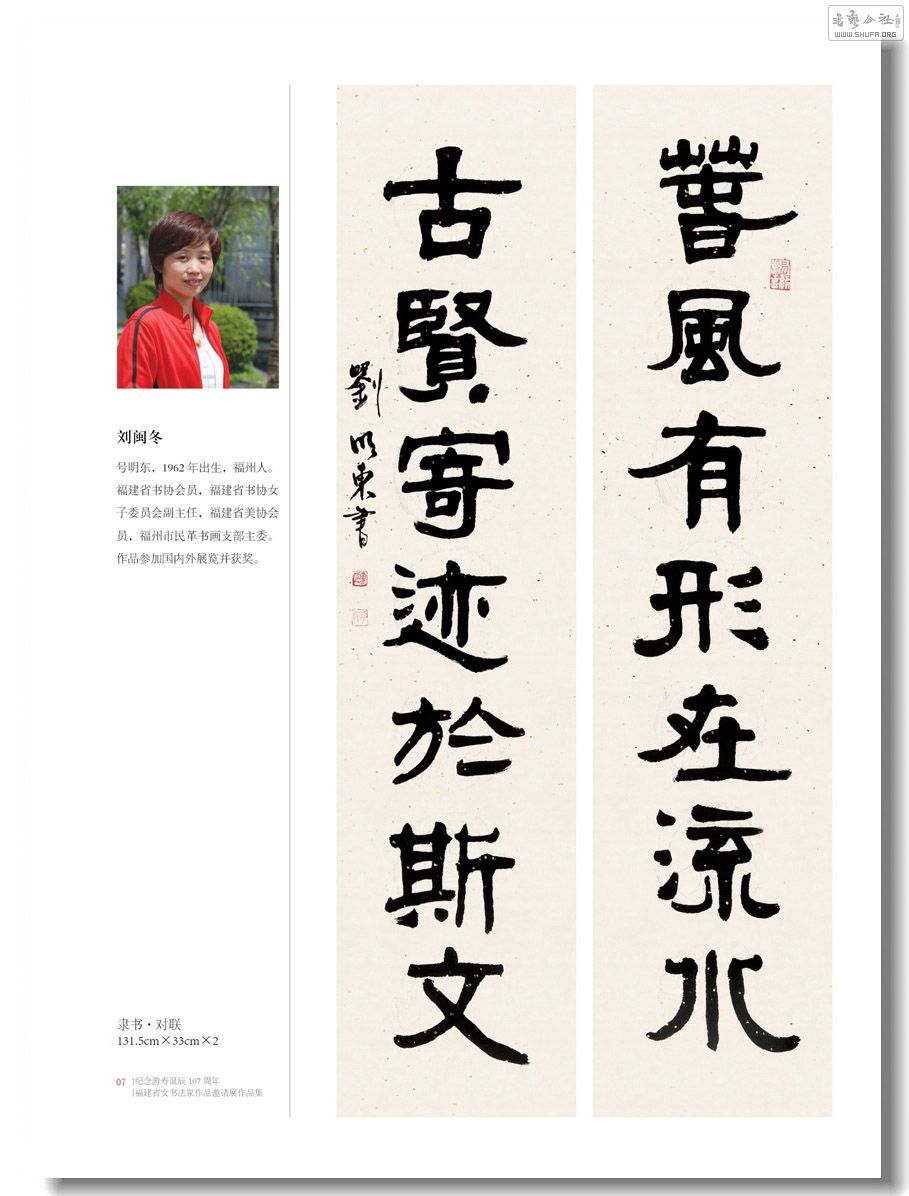 书艺公社
WWW.SHUFA.ORG
萅風有形在流水
古賢寄迹於斯文
劉明東書
刘闽冬
号明东，1962 年出生，福州人。
福建省书协会员，福建省书协女
子委员会副主任，福建省美协会
员，福州市民革书画支部主委。
作品参加国内外展览并获奖。
隶书·对联
131.5cm×33cm×2
07
纪念游寿诞辰 107 周年
福建省女书法家作品邀请展作品集